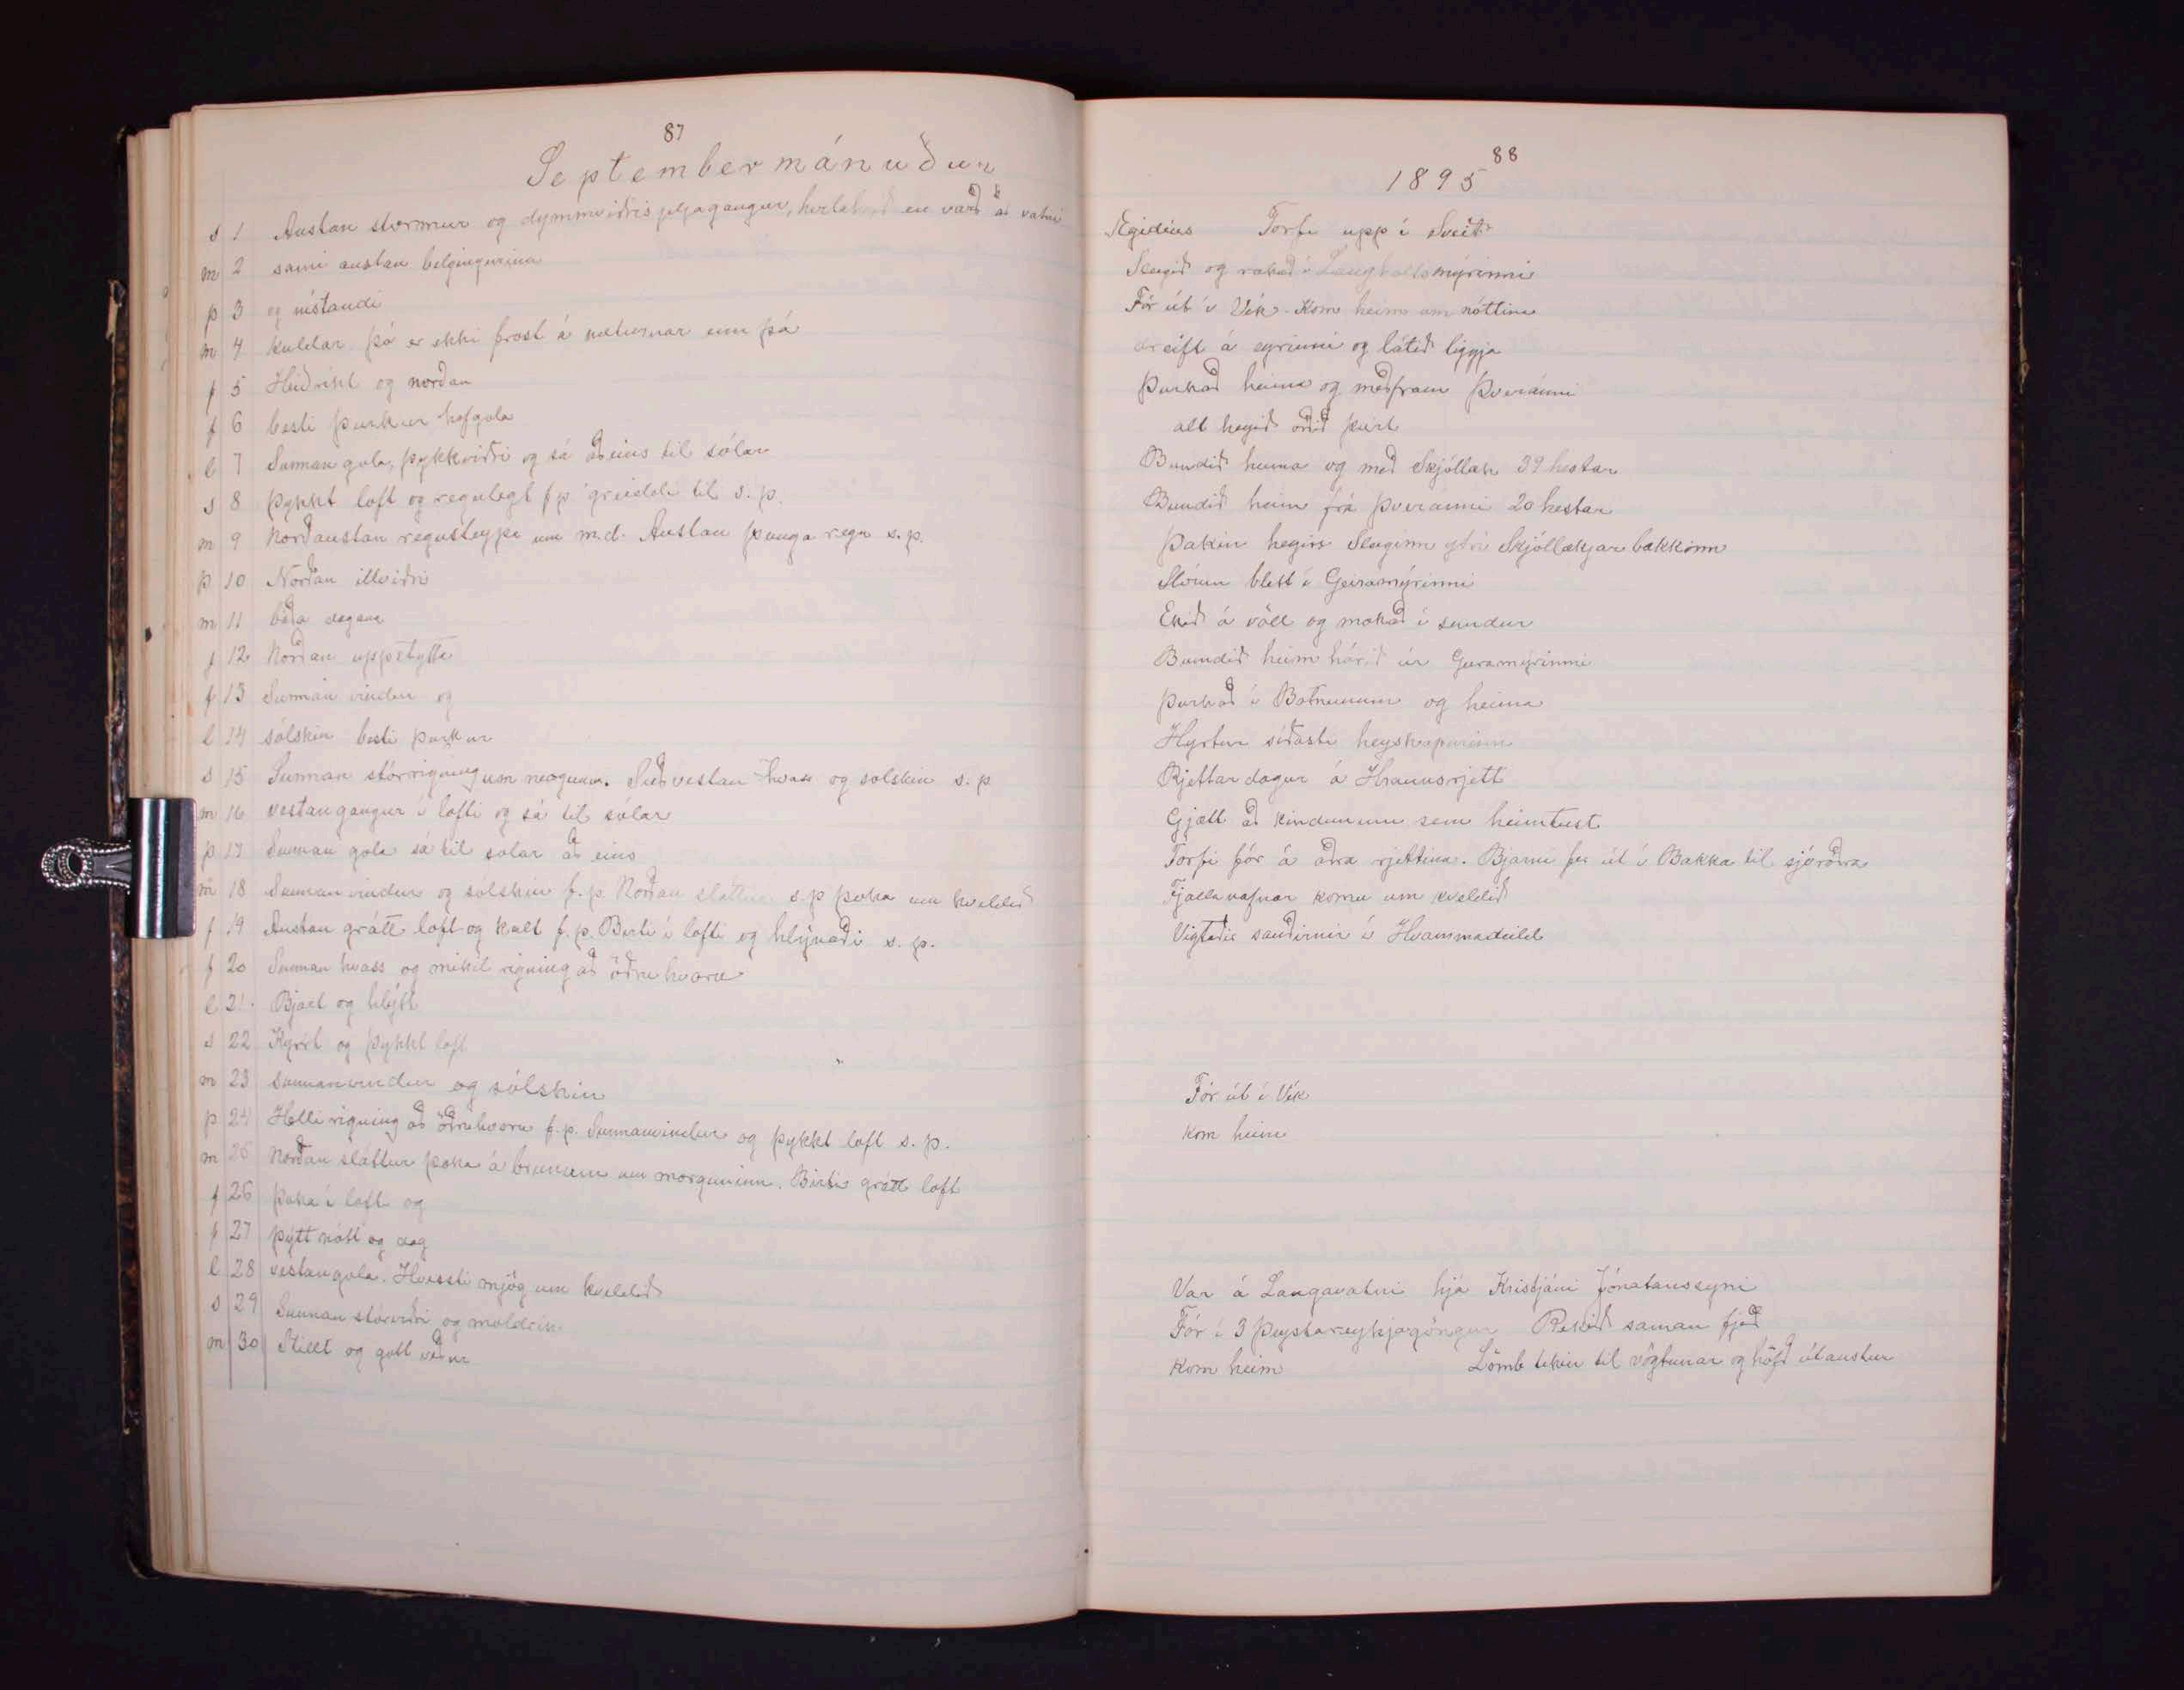 87
Septembermánuður
s 1 Austan stormur og dymmviðris jeljagangur, en varð að vatni
m 2 sami austan belgingurinn
þ 3 og nístandi
m 4 kuldar þó er ekki frost á næturnar enn þá
f 5 Heiðríkt og norðan
f 6 besti þurkur hafgola
l 7 Sunnan gola, þykkviðri og sá aðeins til sólar
s 8 þykkt loft og regnlegt f p til s. p.
m 9 Norðaustan regnsteypa um m.d. Austan þunga regn s. p.
þ 10 Norðan illviðri
m 11 báða dagana
f 12 Norðan uppstytta
f 13 Sunnan vindur og
l 14 sólskin besti þurkur
s 15 Sunnan stórrigning um morguninn. Suðvestan hvass og sólskin s. p
m 16 vestangangur í lofti og sá til sólar
þ 17 Sunnan gola sá til sólar að eins
m 18 Sunnan vindur og sólskin f. p. Norðan sláttur s. p þoka um kveldið
f 19 Austan grátt loft og kalt f. p. Birti í lofti og hlýnaði s. p.
f 20 Sunnan hvass og mikil rigning að öðru hvoru
l 21. Bjart og hlýtt
s 22 Kyrrt og þykkt loft
m 23 Sunnanvindur og sólskin
þ 24 Hellirigning að öðruhvoru f. p. Sunnanvindur og þykkt loft s. p.
m 25 Norðan sláttur þoka á brúnum um morguninn. Birti grátt loft
f 26 þoka í loft og
f 27 þýtt nótt og dag
l 28 vestangola. Hvessti mjög um kveldið
s 29 Sunnan stórviðri og moldrok
m 30 Stillt og gott veður
88
1895
Egidius Torfi upp í Sveit
Slegið og rakað í Langholtsmýrinni
Fór út í Vík. Kom heim um nóttina
dreift á eyrinni og látið liggja
Þurkað heima og meðfram Þveránni
allt heyið orðið þurt
Bundið heima og með Skjóllæk 39 hestar
Bundið heim frá Þveránni 20 hestar
Þakin heyin Sleginn ytri Skjóllækjarbakkinn
Slóum blett í Geiramýrinni
Ekið á völl og mokað í sundur
Bundið heim háið úr Geiramýrinni
Þurkað í Botnunum og heima
Hyrtur síðasti heyskapurinn
Rjettardagur á Hraunsrjett
Gjætt að kindunum sem heimtust
Torfi fór á aðra rjettina. Bjarni fer út í Bakka til sjóróðra
Fjallasafnar komu um kveldið
Vigtaðir sauðirnir í Hvammadeild
Fór út í Vík
kom heim
Var á Langavatni hjá Kristjáni Jónatanssyni
Fór í 3 Þeystareykjagöngur Rekið saman fjeð
Kom heim Lömb tekin til vögtunar og höfð útaustur